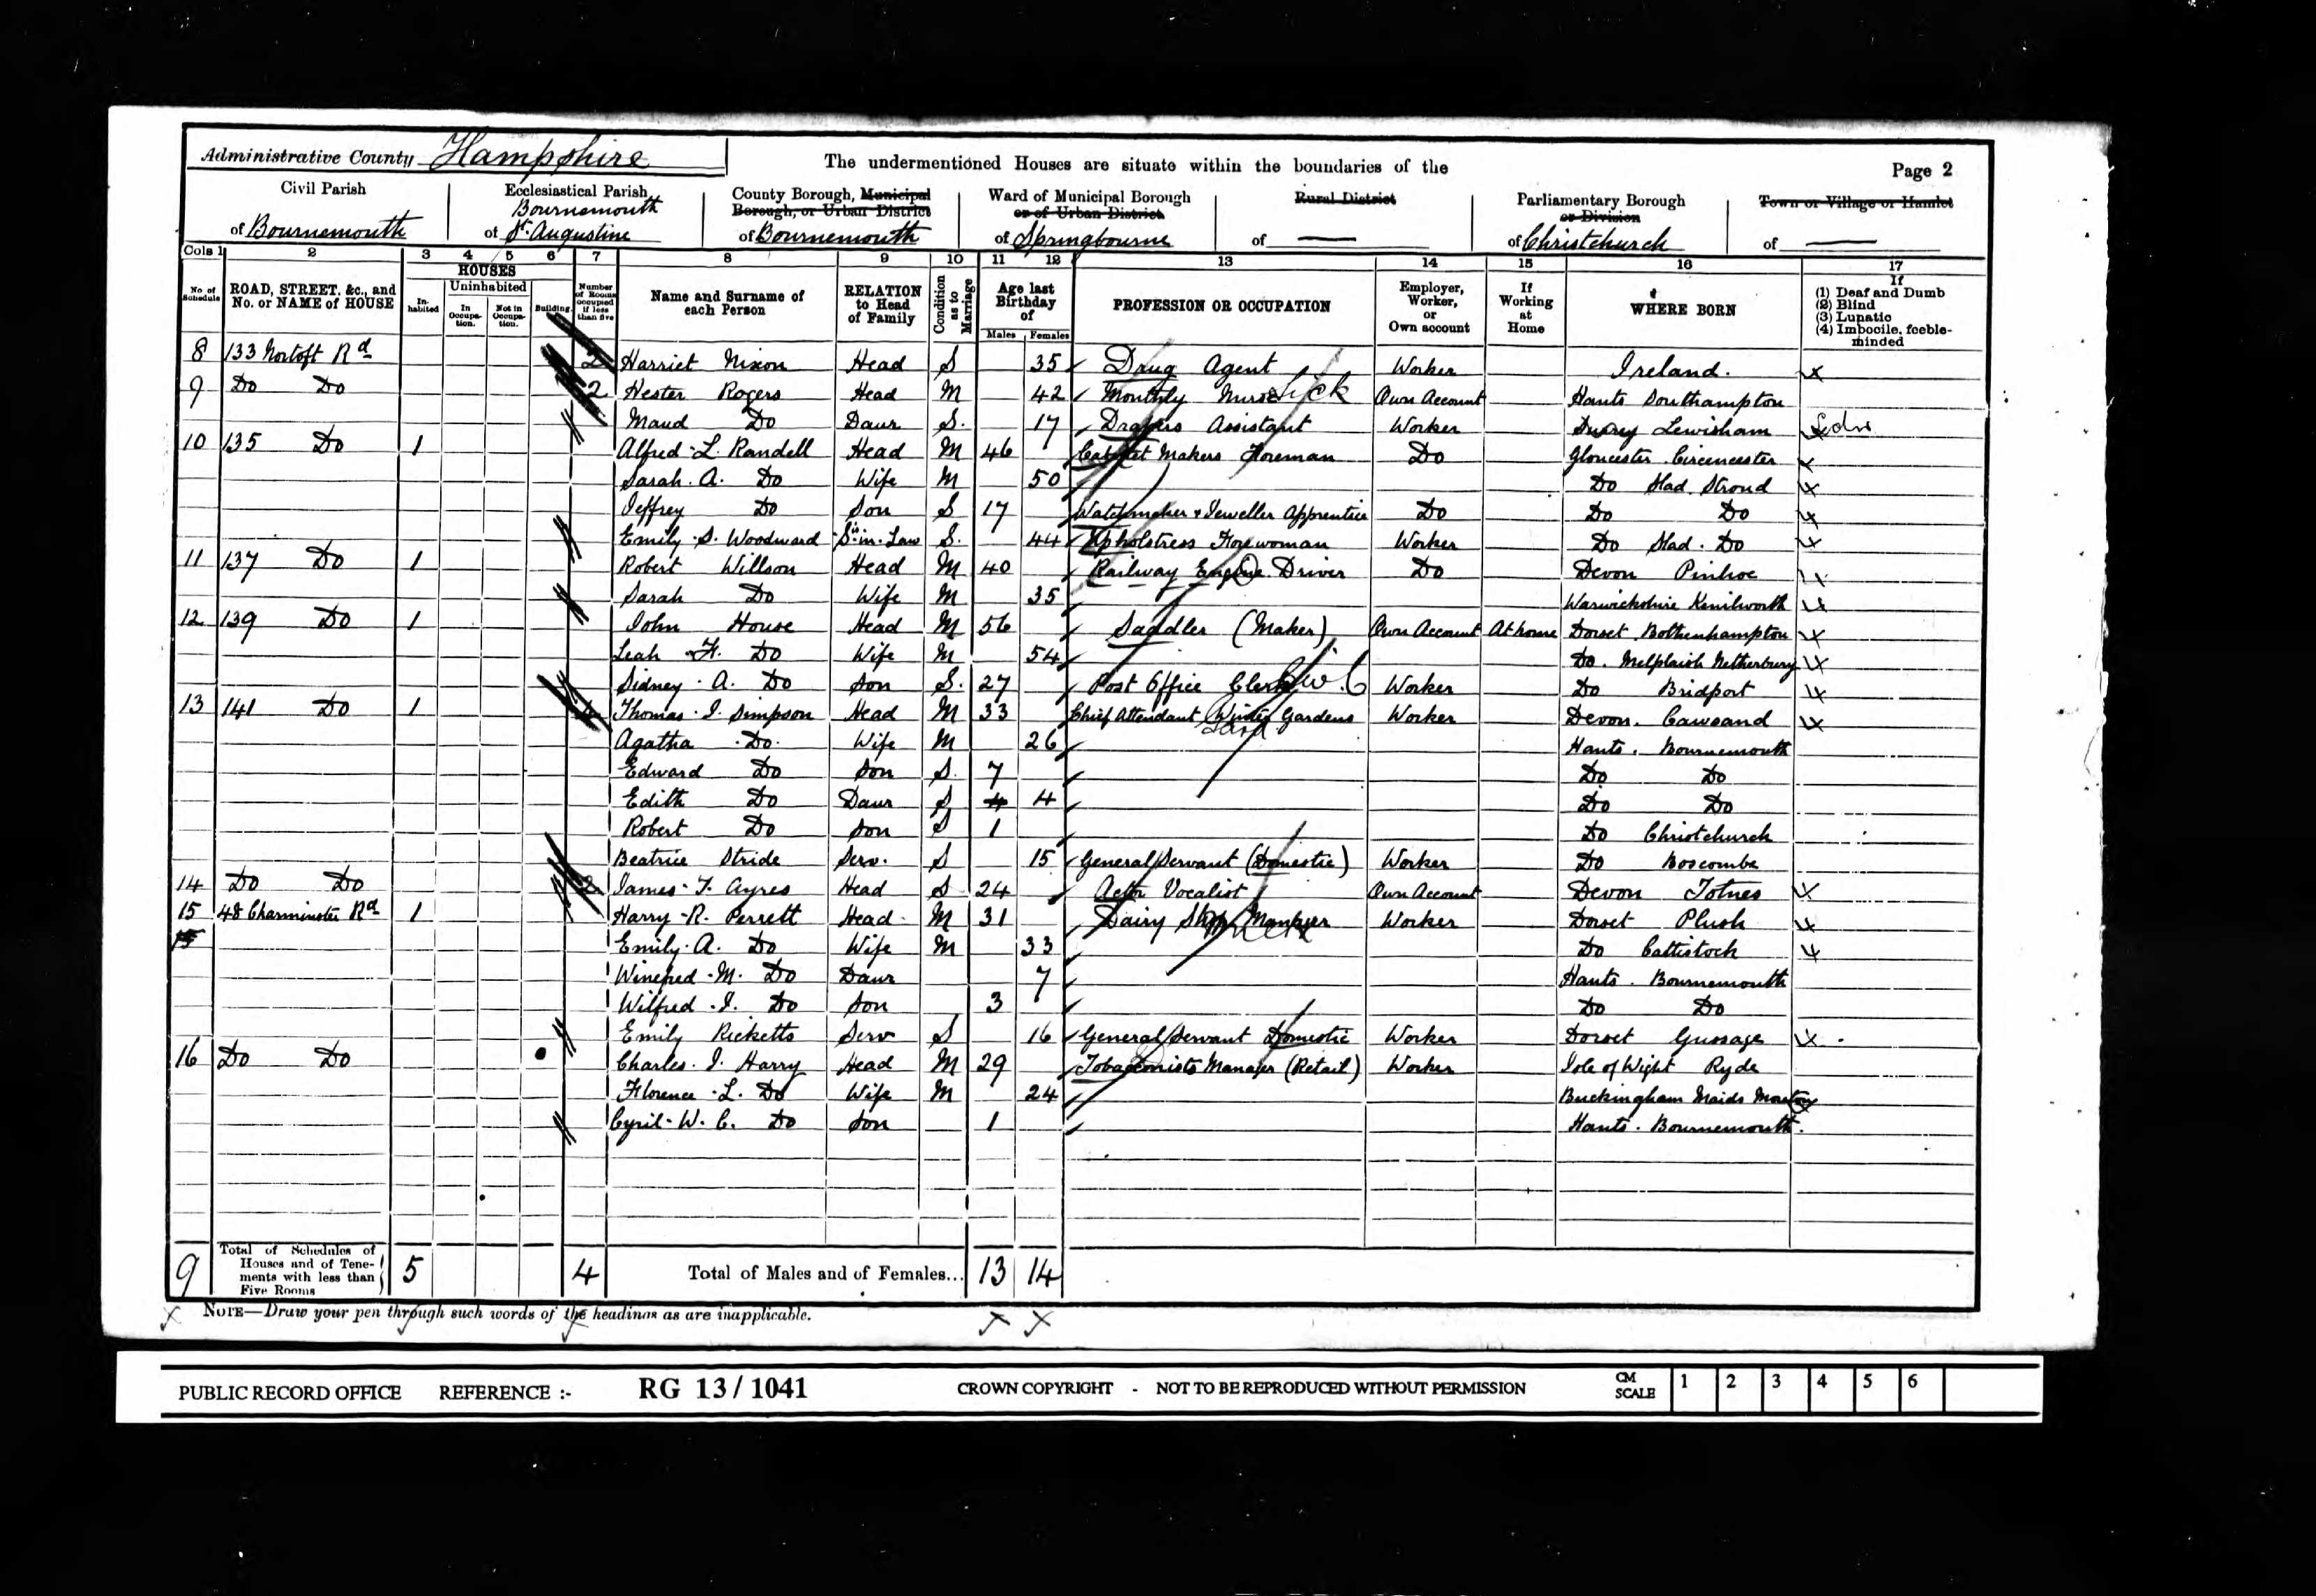 Administrative County Hampshire
The undermentioned Houses are situate within the boundaries of the
Page 2
Civil Parish of Bournemouth
Ecclesiastical Parish of Bournemouth St. Augustine
County Borough, Municipal Borough, or Urban District of Bournemouth
Ward of Municipal Borough or of Urban District of Springbourne
Rural District of —
Parliamentary Borough or Division of Christchurch
Town or Village or Hamlet of —
Cols 1 2 3 4 5 6 7 8 9 10 11 12 13 14 15 16 17
No. of Schedule
ROAD, STREET, &c., and No. or NAME of HOUSE
HOUSES
In-habited
Uninhabited
In Occupa-tion.
Not in Occupa-tion.
Building.
Number of Rooms occupied if less than five
Name and Surname of each Person
RELATION to Head of Family
Condition as to Marriage
Age last Birthday of
Males Females
PROFESSION OR OCCUPATION
Employer, Worker, or Own account
If Working at Home
WHERE BORN
If (1) Deaf and Dumb (2) Blind (3) Lunatic (4) Imbecile, feeble-minded
8 133 Nortoft Rd 2 Harriet Nixon Head S 35 Drug Agent Worker Ireland.
9 Do Do 2 Hester Rogers Head M 42 Monthly Nurse Sick Own Account Hants Southampton
Maud Do Daur S. 17 Drapers Assistant Worker Surrey Lewisham
10 135 Do 1 Alfred L. Randell Head M 46 Cabinet Makers Foreman Do Gloucester Cirencester
Sarah A. Do Wife M 50 Do Slad. Stroud
Jeffrey Do Son S 17 Watchmaker & Jeweller Apprentice Do Do Do
Emily S. Woodward S. in Law S. 44 Upholstress Forewoman Worker Do Slad. Do
11 137 Do 1 Robert Willson Head M 40 Railway Engine Driver Do Devon Pinhoe
Sarah Do Wife M 35 Warwickshire Kenilworth
12 139 Do 1 John House Head M 56 Saddler (Maker) Own Account At home Dorset Bothenhampton
Leah F. Do Wife M 54 Do. Melplaish Netherbury
Sidney A. Do Son S. 27 Post Office Clerk Worker Do Bridport
13 141 Do 1 4 Thomas J. Simpson Head M 33 Chief Attendant Winter Gardens Worker Devon. Cawsand
Agatha Do. Wife M 26 Hants. Bournemouth
Edward Do Son S. 7 Do Do
Edith Do Daur S 4 4 Do Do
Robert Do Son S 1 Do Christchurch
Beatrice Stride Serv. S 15 General Servant (Domestic) Worker Do Boscombe
14 Do Do 2 James F. Ayres Head S 24 Actor Vocalist Own Account Devon Totnes
15 48 Charminster Rd 1 Harry R. Perrett Head M 31 Dairy Shop Manager Worker Dorset Plush
15 Emily A. Do Wife M 33 Do Cattistock
Winefred M. Do Daur 7 Hants. Bournemouth
Wilfred J. Do Son 3 Do Do
Emily Ricketts Serv S 16 General Servant Domestic Worker Dorset Gussage
16 Do Do Charles J. Harry Head M 29 Tobacconists Manager (Retail) Worker Isle of Wight Ryde
Florence L. Do Wife M 24 Buckingham Maids Moreton
Cyril W. C. Do Son 1 Hants. Bournemouth.
9 Total of Schedules of Houses and of Tene-ments with less than Five Rooms 5 4 Total of Males and of Females... 13 14
NOTE—Draw your pen through such words of the headings as are inapplicable.
PUBLIC RECORD OFFICE REFERENCE :- RG 13/1041 CROWN COPYRIGHT - NOT TO BE REPRODUCED WITHOUT PERMISSION CM SCALE 1 2 3 4 5 6